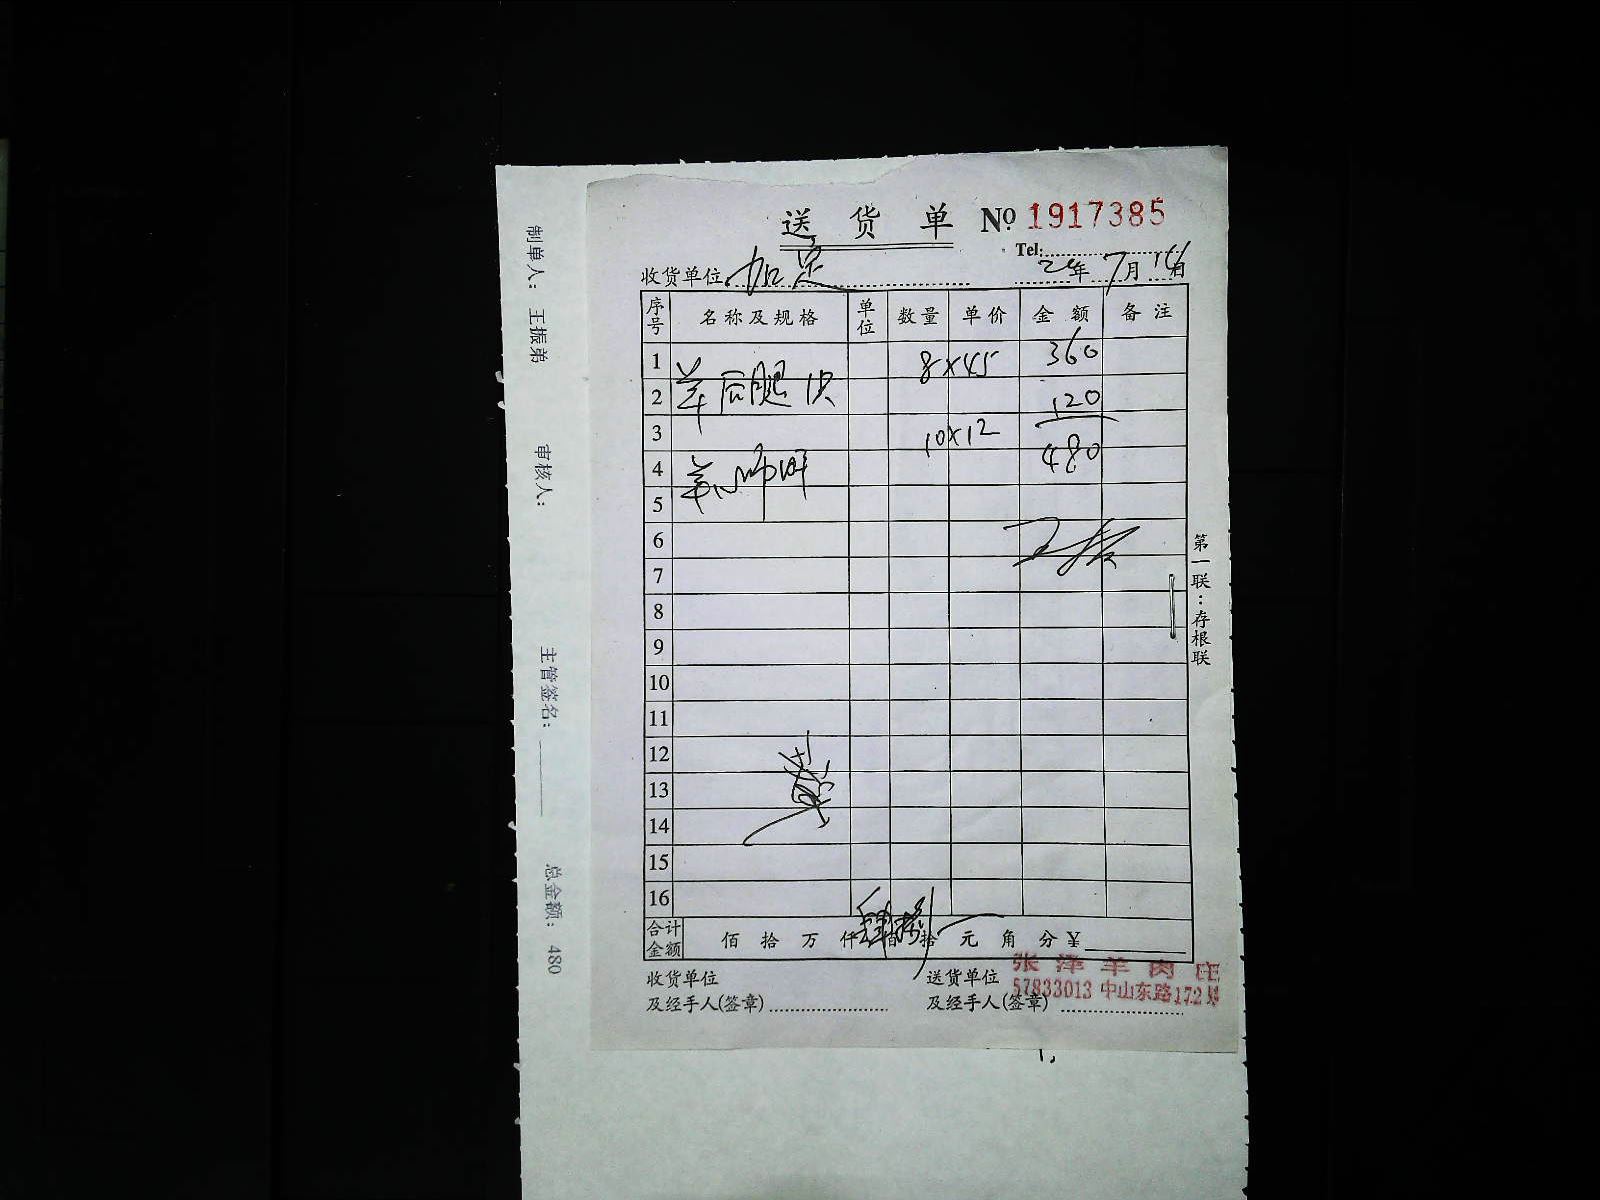 送 货 单 No 1917385
Tel:
收货单位 加 年 7月 日
序号 名称及规格 单位 数量 单价 金额 备注
1 8×45 360
2 羊后腿 120
3 10×12
4 羊 480
5
6
7
8
9
10
11
12
13
14
15
16
合计金额 佰 拾 万 仟 佰 拾 元 角 分 ¥
收货单位
及经手人(签章)
送货单位
及经手人(签章)
张泽羊肉庄
57833013 中山东路172号
第一联：存根联
制单人： 王振弟 审核人： 主管签名： 总金额： 480